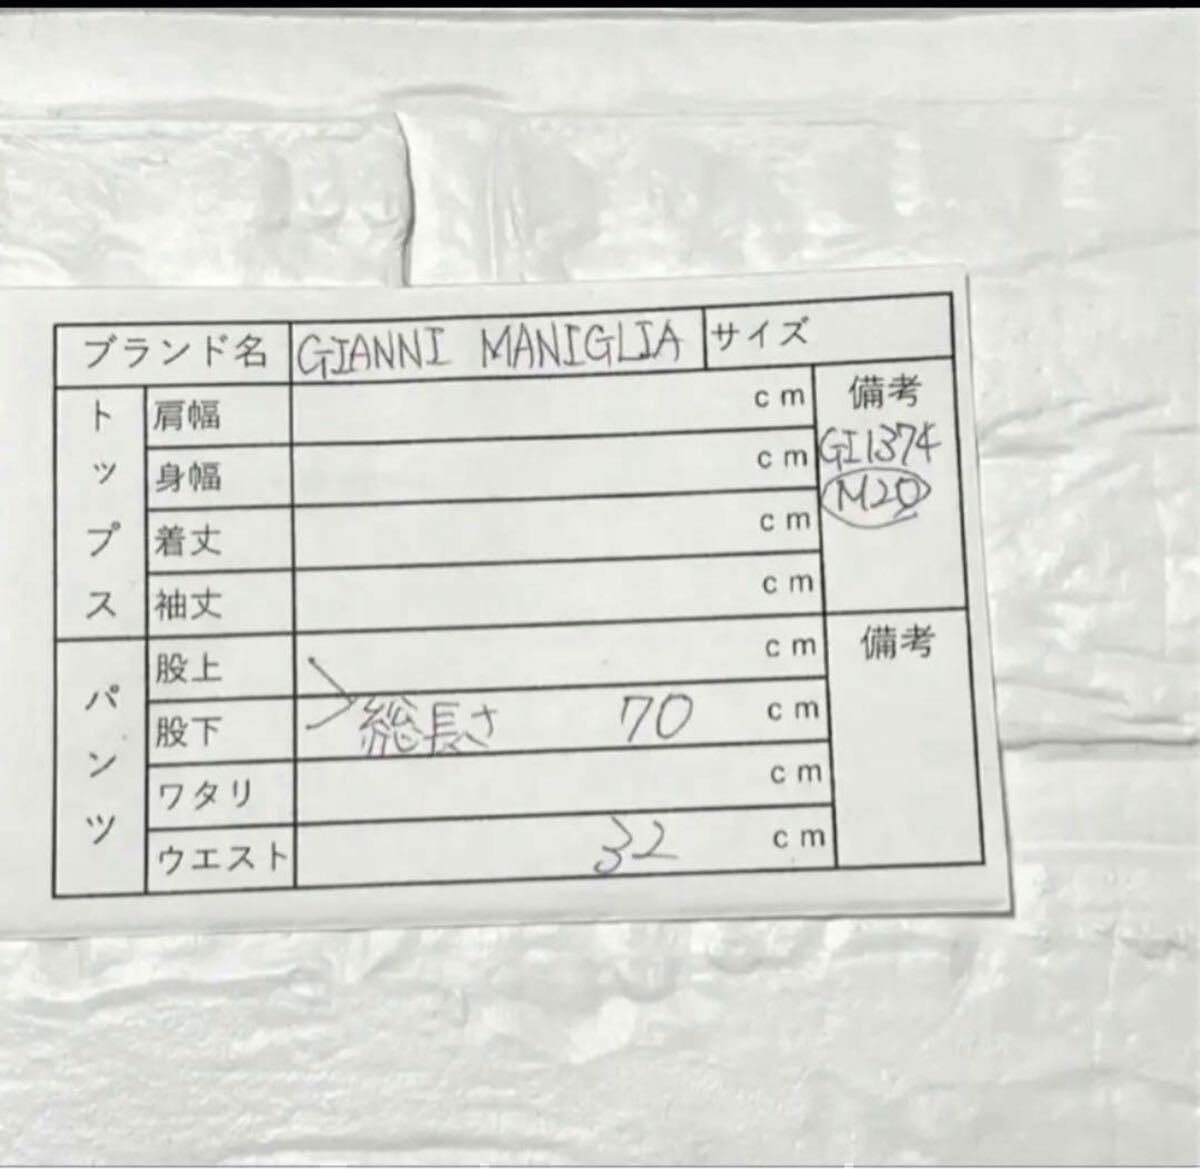 ブランド名 GIANNI MANIGLIA サイズ
トップス 肩幅 cm 備考
身幅 cm GI1374
着丈 cm M20
袖丈 cm
パンツ 股上 cm 備考
股下 総長さ 70 cm
ワタリ cm
ウエスト 32 cm